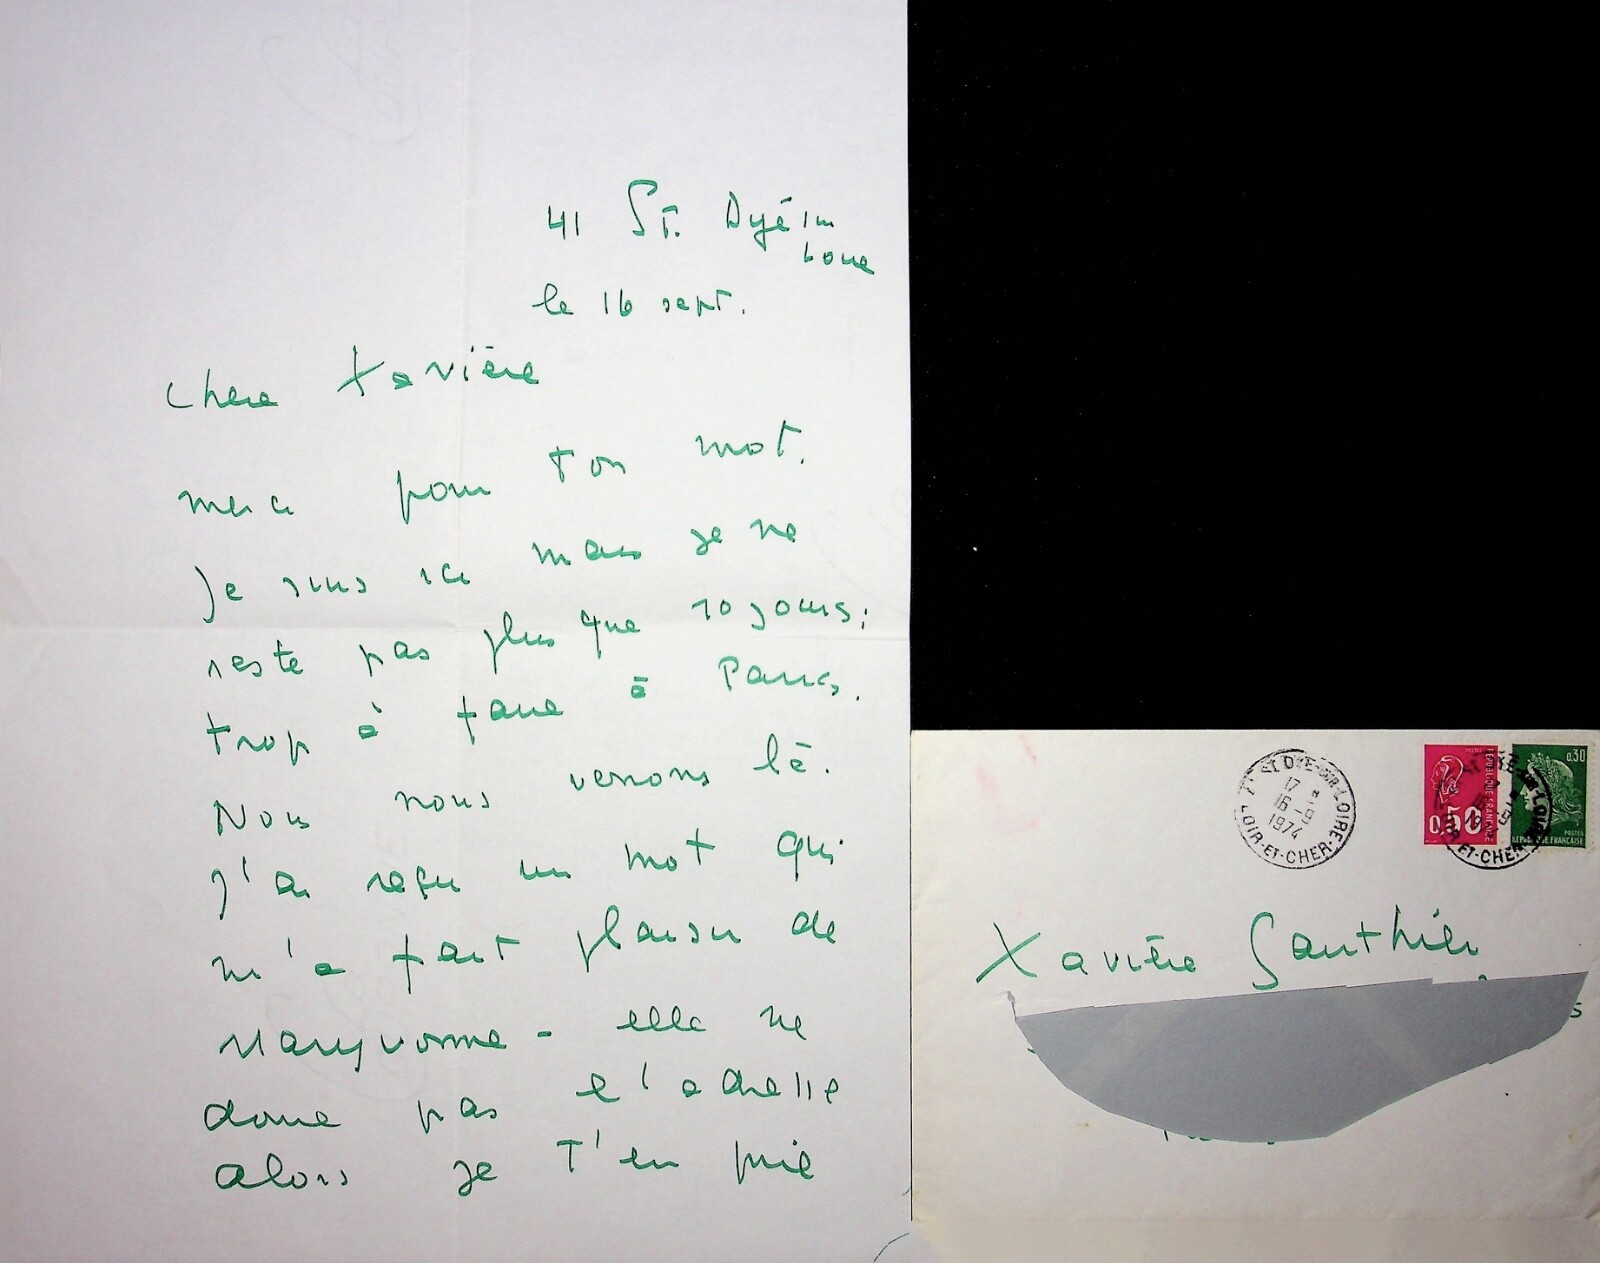 41 St. Dyé sur
Loire
le 16 sept.
Chère Xavière
merci pour ton mot.
Je suis ici mais je ne
reste pas plus que 10 jours;
trop à faire à Paris.
Nous nous verrons là.
J'ai reçu un mot qui
m'a fait plaisir de
Maryvonne - elle ne
donne pas l'adresse
alors je t'en prie
ST DYE-SUR-LOIRE
17
16-9
1974
LOIR-ET-CHER
POSTES
REPUBLIQUE FRANCAISE
0,50
0,30
POSTES
REPUBLIQUE FRANCAISE
LOIRE
ET-CHER
Xavière Gauthier